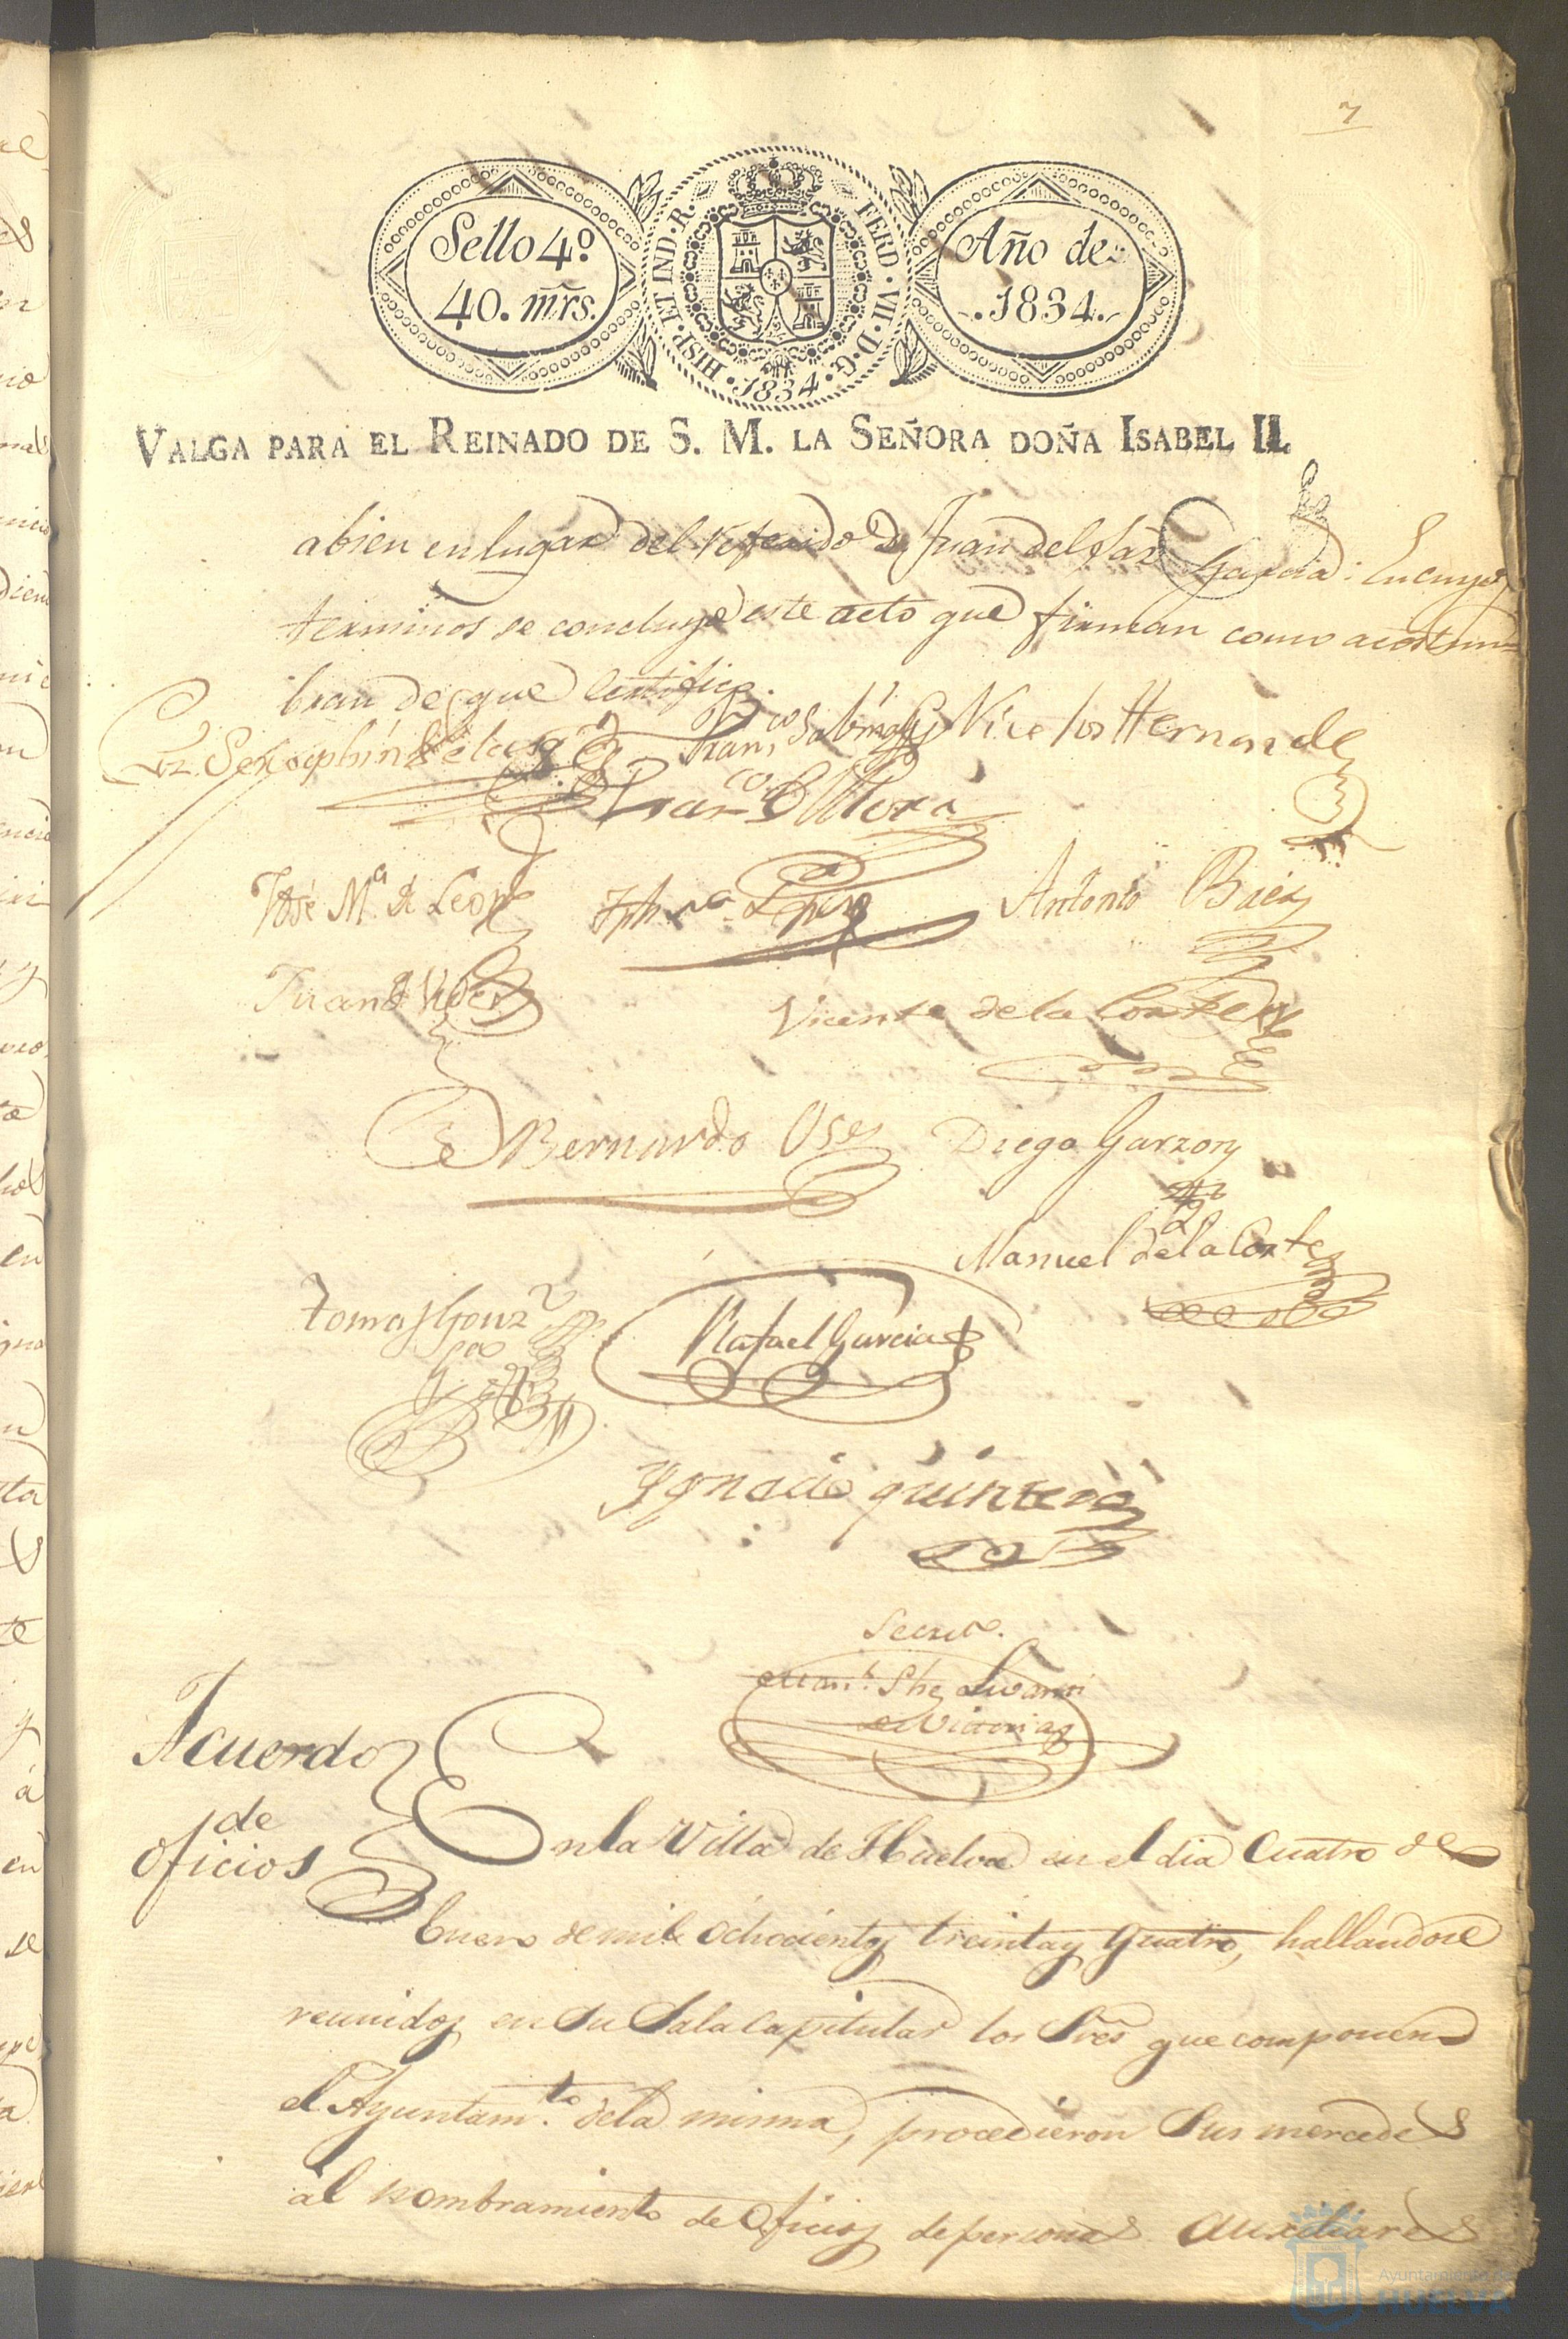 7
Sello 4º
40. mrs.
HISP. ET IND. R. FERD. VII. D. G. 1834.
Año de
1834.
VALGA PARA EL REINADO DE S. M. LA SEÑORA DOÑA ISABEL II.
abien en lugar del referido Dn Juan del García: En cuyos
terminos se concluyó este acto que firman como acostum=
bran de que certifico.
Franco Hernande
Franco Mora
José Ma. de Leon Lopez Antonio Baéz
Juan Vicente de la Corte
Bernardo Diego Garzon
Manuel de la Corte
Tomas Gonz
Rafael Garcia
Ygnacio quintero
Secreto.
Acuerdo
de
oficios
En la Villa de Huelva en el dia Cuatro de
Enero de mil ochocientos treinta y quatro, hallandose
reunidos en su Sala Capitular los Sres que componen
el Ayuntamto. de la misma, procedieron sus mercedes
al nombramiento de Oficios de personas auxiliares
Ayuntamiento de
HUELVA